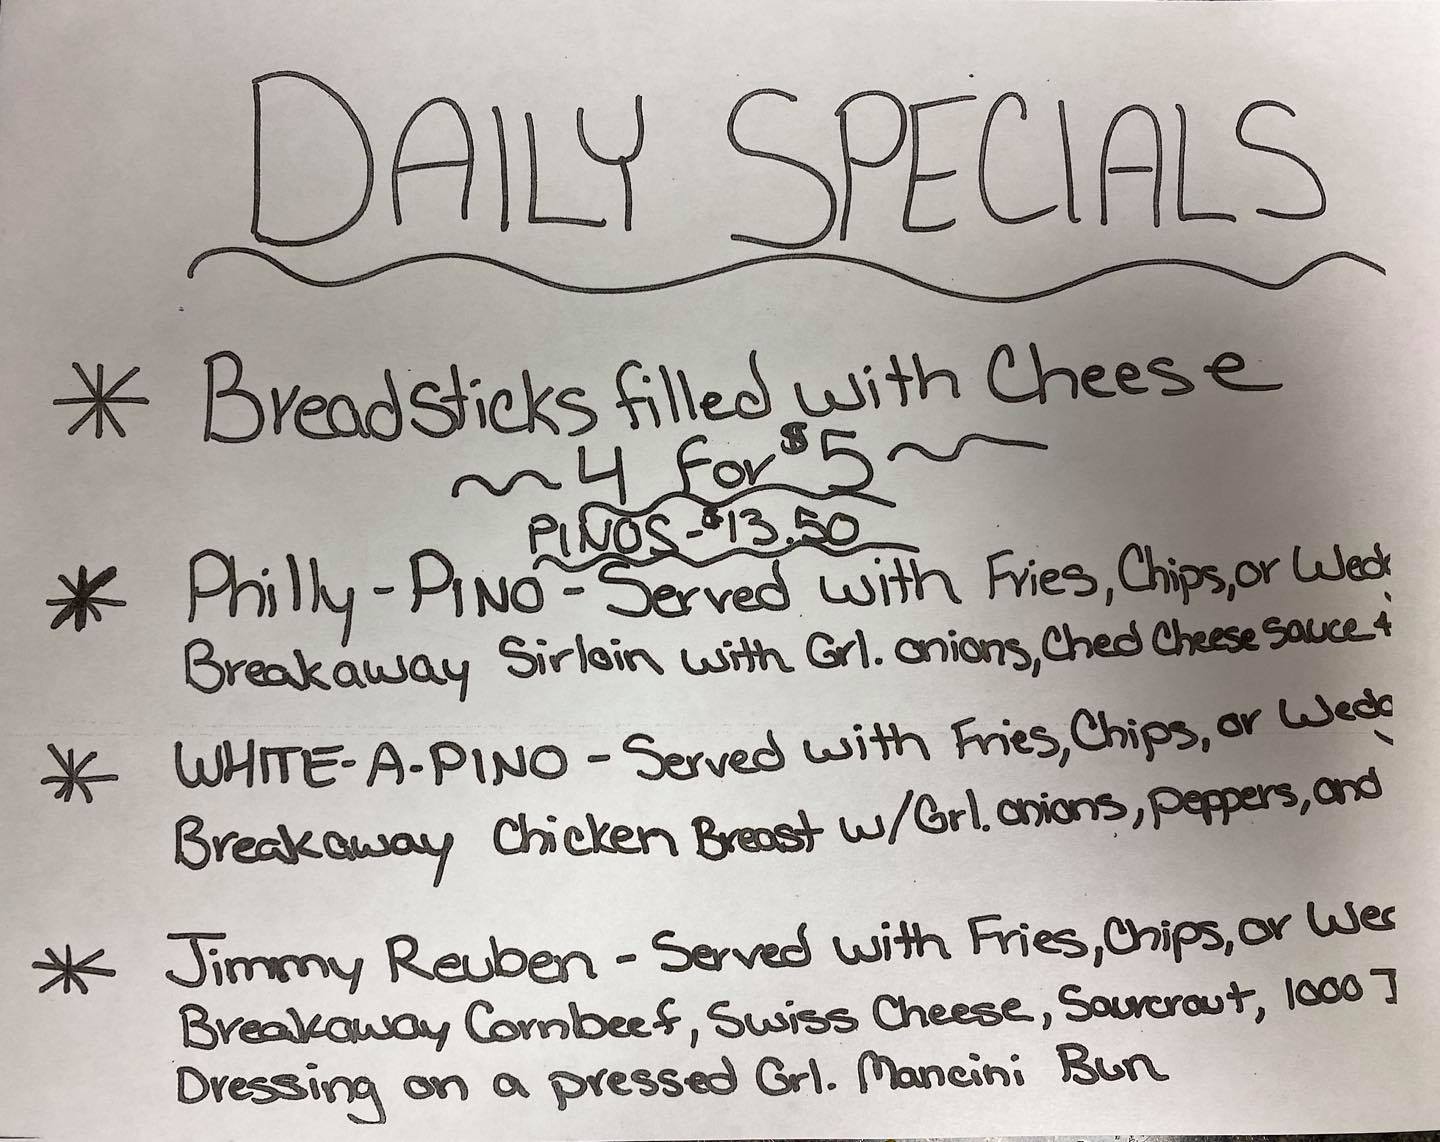 DAILY SPECIALS
* Breadsticks filled with Cheese
~ 4 for $5 ~
PINOS - $13.50
* Philly - PINO - Served with Fries, Chips, or Wed
Breakaway Sirloin with Grl. onions, Ched Cheese Sauce +
* WHITE-A-PINO - Served with Fries, Chips, or Wed
Breakaway Chicken Breast w/Grl. onions, peppers, and
* Jimmy Reuben - Served with Fries, Chips, or We
Breakaway Cornbeef, Swiss Cheese, Saurcraut, 1000 I
Dressing on a pressed Grl. Mancini Bun